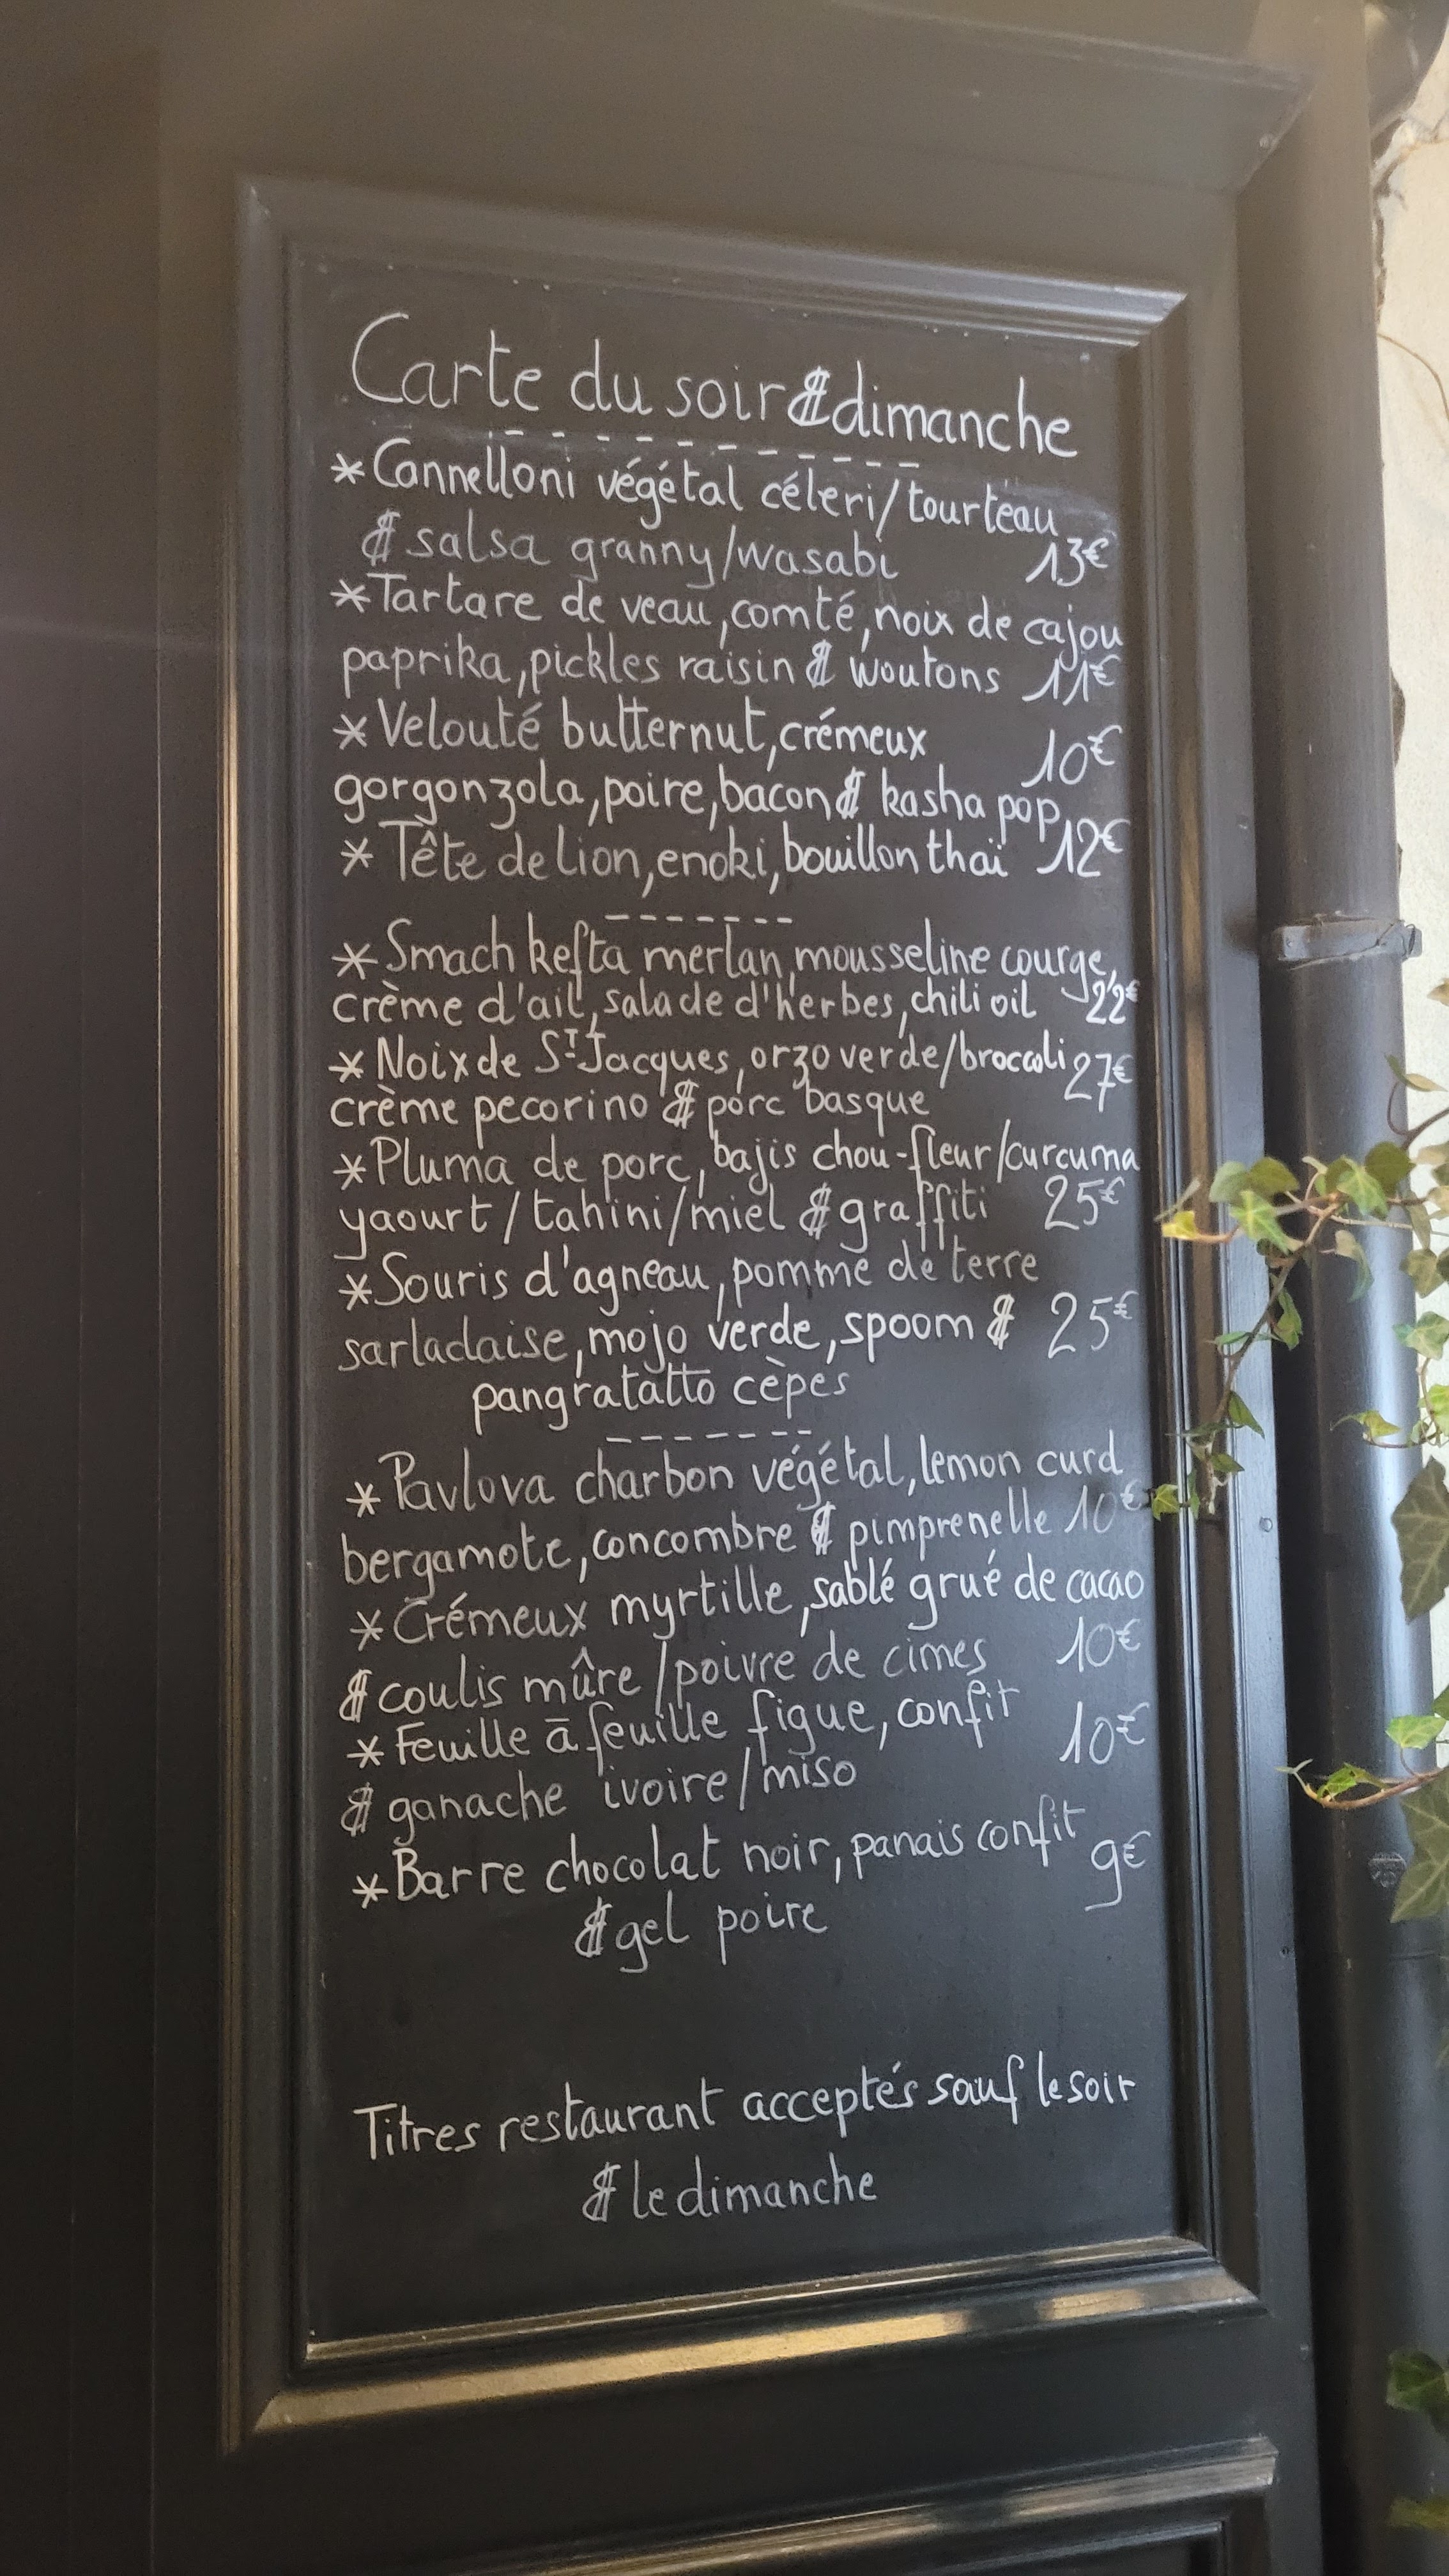 Carte du soir & dimanche
* Cannelloni végétal céleri/tourteau
& salsa granny/wasabi 13€
* Tartare de veau, comté, noix de cajou
paprika, pickles raisin & woutons 11€
* Velouté butternut, crémeux 10€
gorgonzola, poire, bacon & kasha pop
* Tête de lion, enoki, bouillon thaï 12€
* Smach kefta merlan, mousseline courge,
crème d'ail, salade d'herbes, chili oil 22€
* Noix de ST Jacques, orzo verde/broccoli 27€
crème pecorino & porc basque
* Pluma de porc, bajis chou-fleur/curcuma
yaourt/tahini/miel & graffiti 25€
* Souris d'agneau, pomme de terre
sarladaise, mojo verde, spoom & 25€
pangratatto cèpes
* Pavlova charbon végétal, lemon curd
bergamote, concombre & pimprenelle 10€
* Crémeux myrtille, sablé grué de cacao
& coulis mûre/poivre de cimes 10€
* Feuille à feuille figue, confit 10€
& ganache ivoire/miso
* Barre chocolat noir, panais confit 9€
& gel poire
Titres restaurant acceptés sauf le soir
& le dimanche